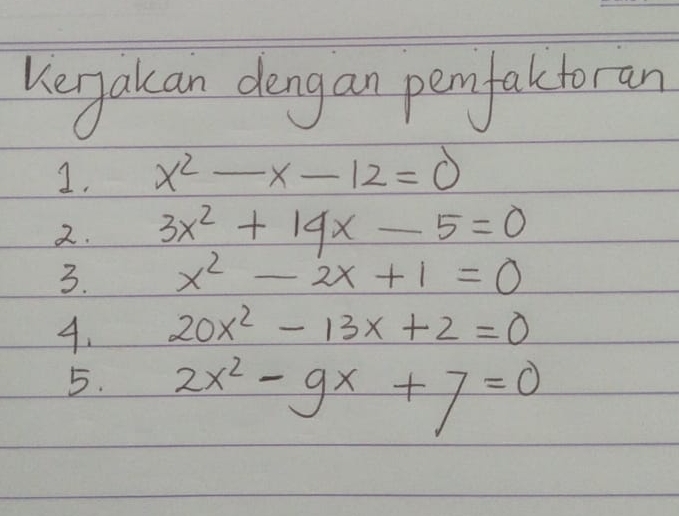 Kerjakan dengan pemfaktoran
1. x² – x – 12 = 0
2. 3x² + 14x – 5 = 0
3. x² – 2x + 1 = 0
4. 20x² – 13x + 2 = 0
5. 2x² – 9x + 7 = 0